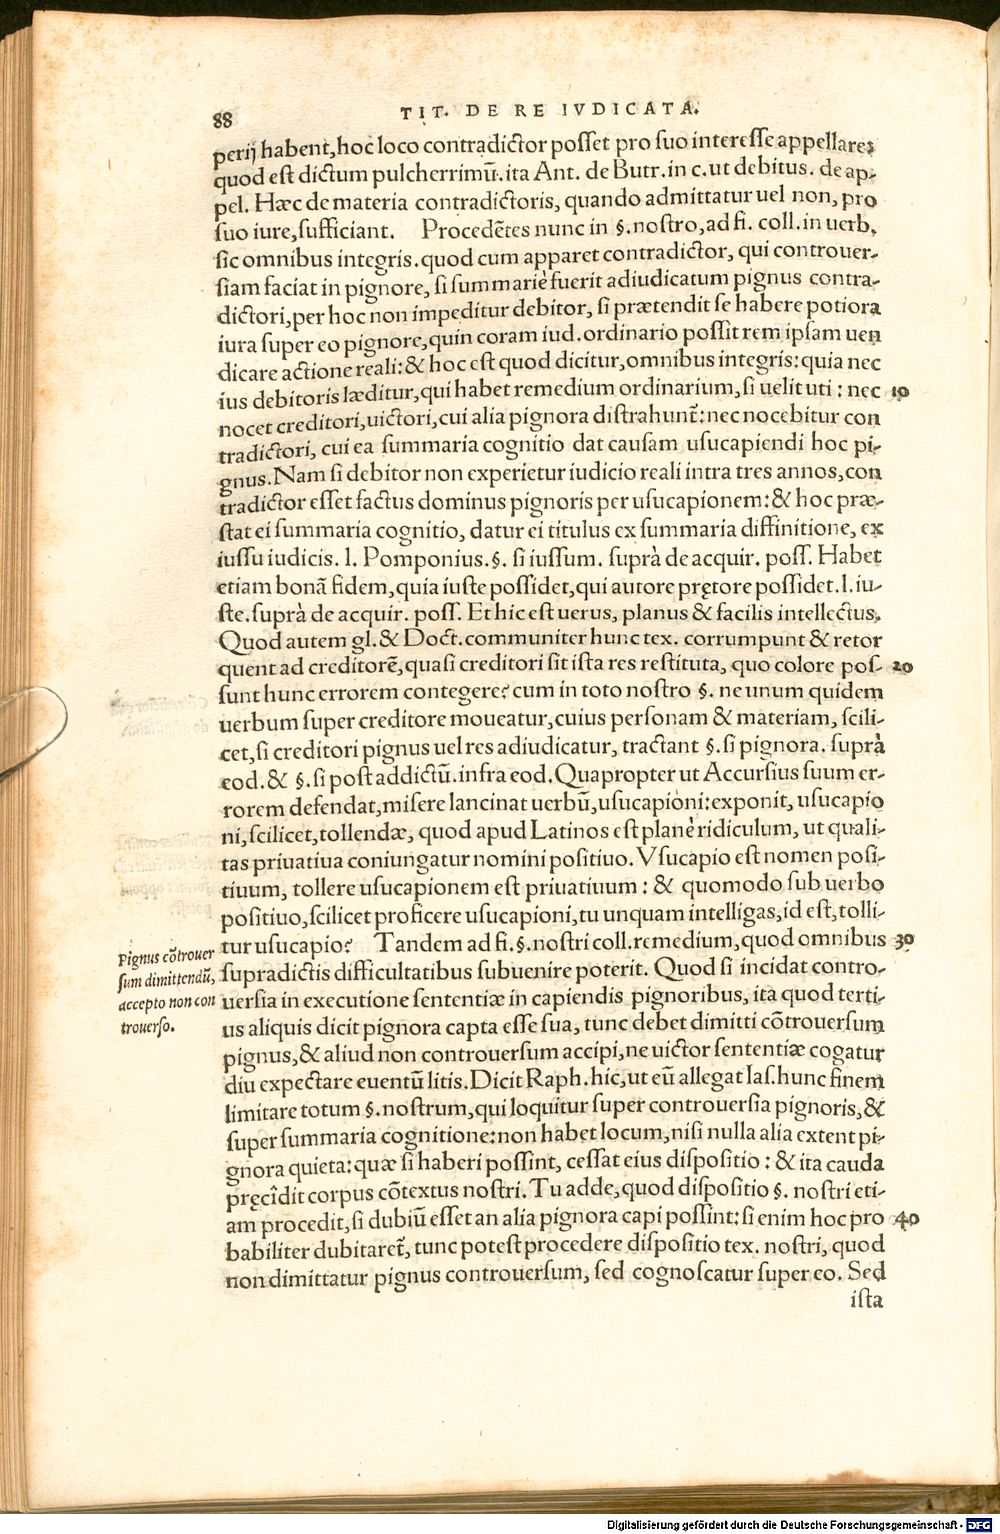 88 TIT. DE RE IVDICATA.
perij habent, hoc loco contradictor posset pro suo interesse appellare:
quod est dictum pulcherrimũ. ita Ant. de Butr. in c. ut debitus. de ap-
pel. Hæc de materia contradictoris, quando admittatur uel non, pro
suo iure, sufficiant. Procedẽtes nunc in §. nostro, ad fi. coll. in uerb.
sic omnibus integris. quod cum apparet contradictor, qui controuer-
siam faciat in pignore, si summariè fuerit adiudicatum pignus contra-
dictori, per hoc non impeditur debitor, si prætendit se habere potiora
iura super eo pignore, quin coram iud. ordinario possit rem ipsam uen
dicare actione reali: & hoc est quod dicitur, omnibus integris: quia nec
ius debitoris læditur, qui habet remedium ordinarium, si uelit uti: nec 10
nocet creditori, uictori, cui alia pignora distrahunt̃: nec nocebitur con
tradictori, cui ea summaria cognitio dat causam usucapiendi hoc pi-
gnus. Nam si debitor non experietur iudicio reali intra tres annos, con
tradictor esset factus dominus pignoris per usucapionem: & hoc præ-
stat ei summaria cognitio, datur ei titulus ex summaria diffinitione, ex
iussu iudicis. l. Pomponius. §. si iussum. suprà de acquir. poss. Habet
etiam bonã fidem, quia iuste possidet, qui autore prętore possidet. l. iu-
ste. suprà de acquir. poss. Et hic est uerus, planus & facilis intellectus.
Quod autem gl. & Doct. communiter hunc tex. corrumpunt & retor
quent ad creditorẽ, quasi creditori sit ista res restituta, quo colore pos- 20
sunt hunc errorem contegere? cum in toto nostro §. ne unum quidem
uerbum super creditore moueatur, cuius personam & materiam, scili-
cet, si creditori pignus uel res adiudicatur, tractant §. si pignora. suprà
eod. & §. si post addictũ. infra eod. Quapropter ut Accursius suum er-
rorem defendat, misere lancinat uerbũ, usucapioni: exponit, usucapio
ni, scilicet, tollendæ, quod apud Latinos est planè ridiculum, ut quali-
tas priuatiua coniungatur nomini positiuo. Vsucapio est nomen posi-
tiuum, tollere usucapionem est priuatiuum: & quomodo sub uerbo
positiuo, scilicet proficere usucapioni, tu unquam intelligas, id est, tolli-
tur usucapio? Tandem ad fi. §. nostri coll. remedium, quod omnibus 30
supradictis difficultatibus subuenire poterit. Quod si incidat contro-
uersia in executione sententiæ in capiendis pignoribus, ita quod terti-
us aliquis dicit pignora capta esse sua, tunc debet dimitti cõtrouersum
pignus, & aliud non controuersum accipi, ne uictor sententiæ cogatur
diu expectare euentũ litis. Dicit Raph. hic, ut eũ allegat Ias. hunc finem
limitare totum §. nostrum, qui loquitur super controuersia pignoris, &
super summaria cognitione: non habet locum, nisi nulla alia extent pi-
gnora quieta: quæ si haberi possint, cessat eius dispositio: & ita cauda
pręcîdit corpus cõtextus nostri. Tu adde, quod dispositio §. nostri eti-
am procedit, si dubiũ esset an alia pignora capi possint: si enim hoc pro 40
babiliter dubitaret̃, tunc potest procedere dispositio tex. nostri, quod
non dimittatur pignus controuersum, sed cognoscatur super eo. Sed
ista
Pignus cõtrouer
sum dimittendũ,
accepto non con
trouerso.
Digitalisierung gefördert durch die Deutsche Forschungsgemeinschaft - DFG